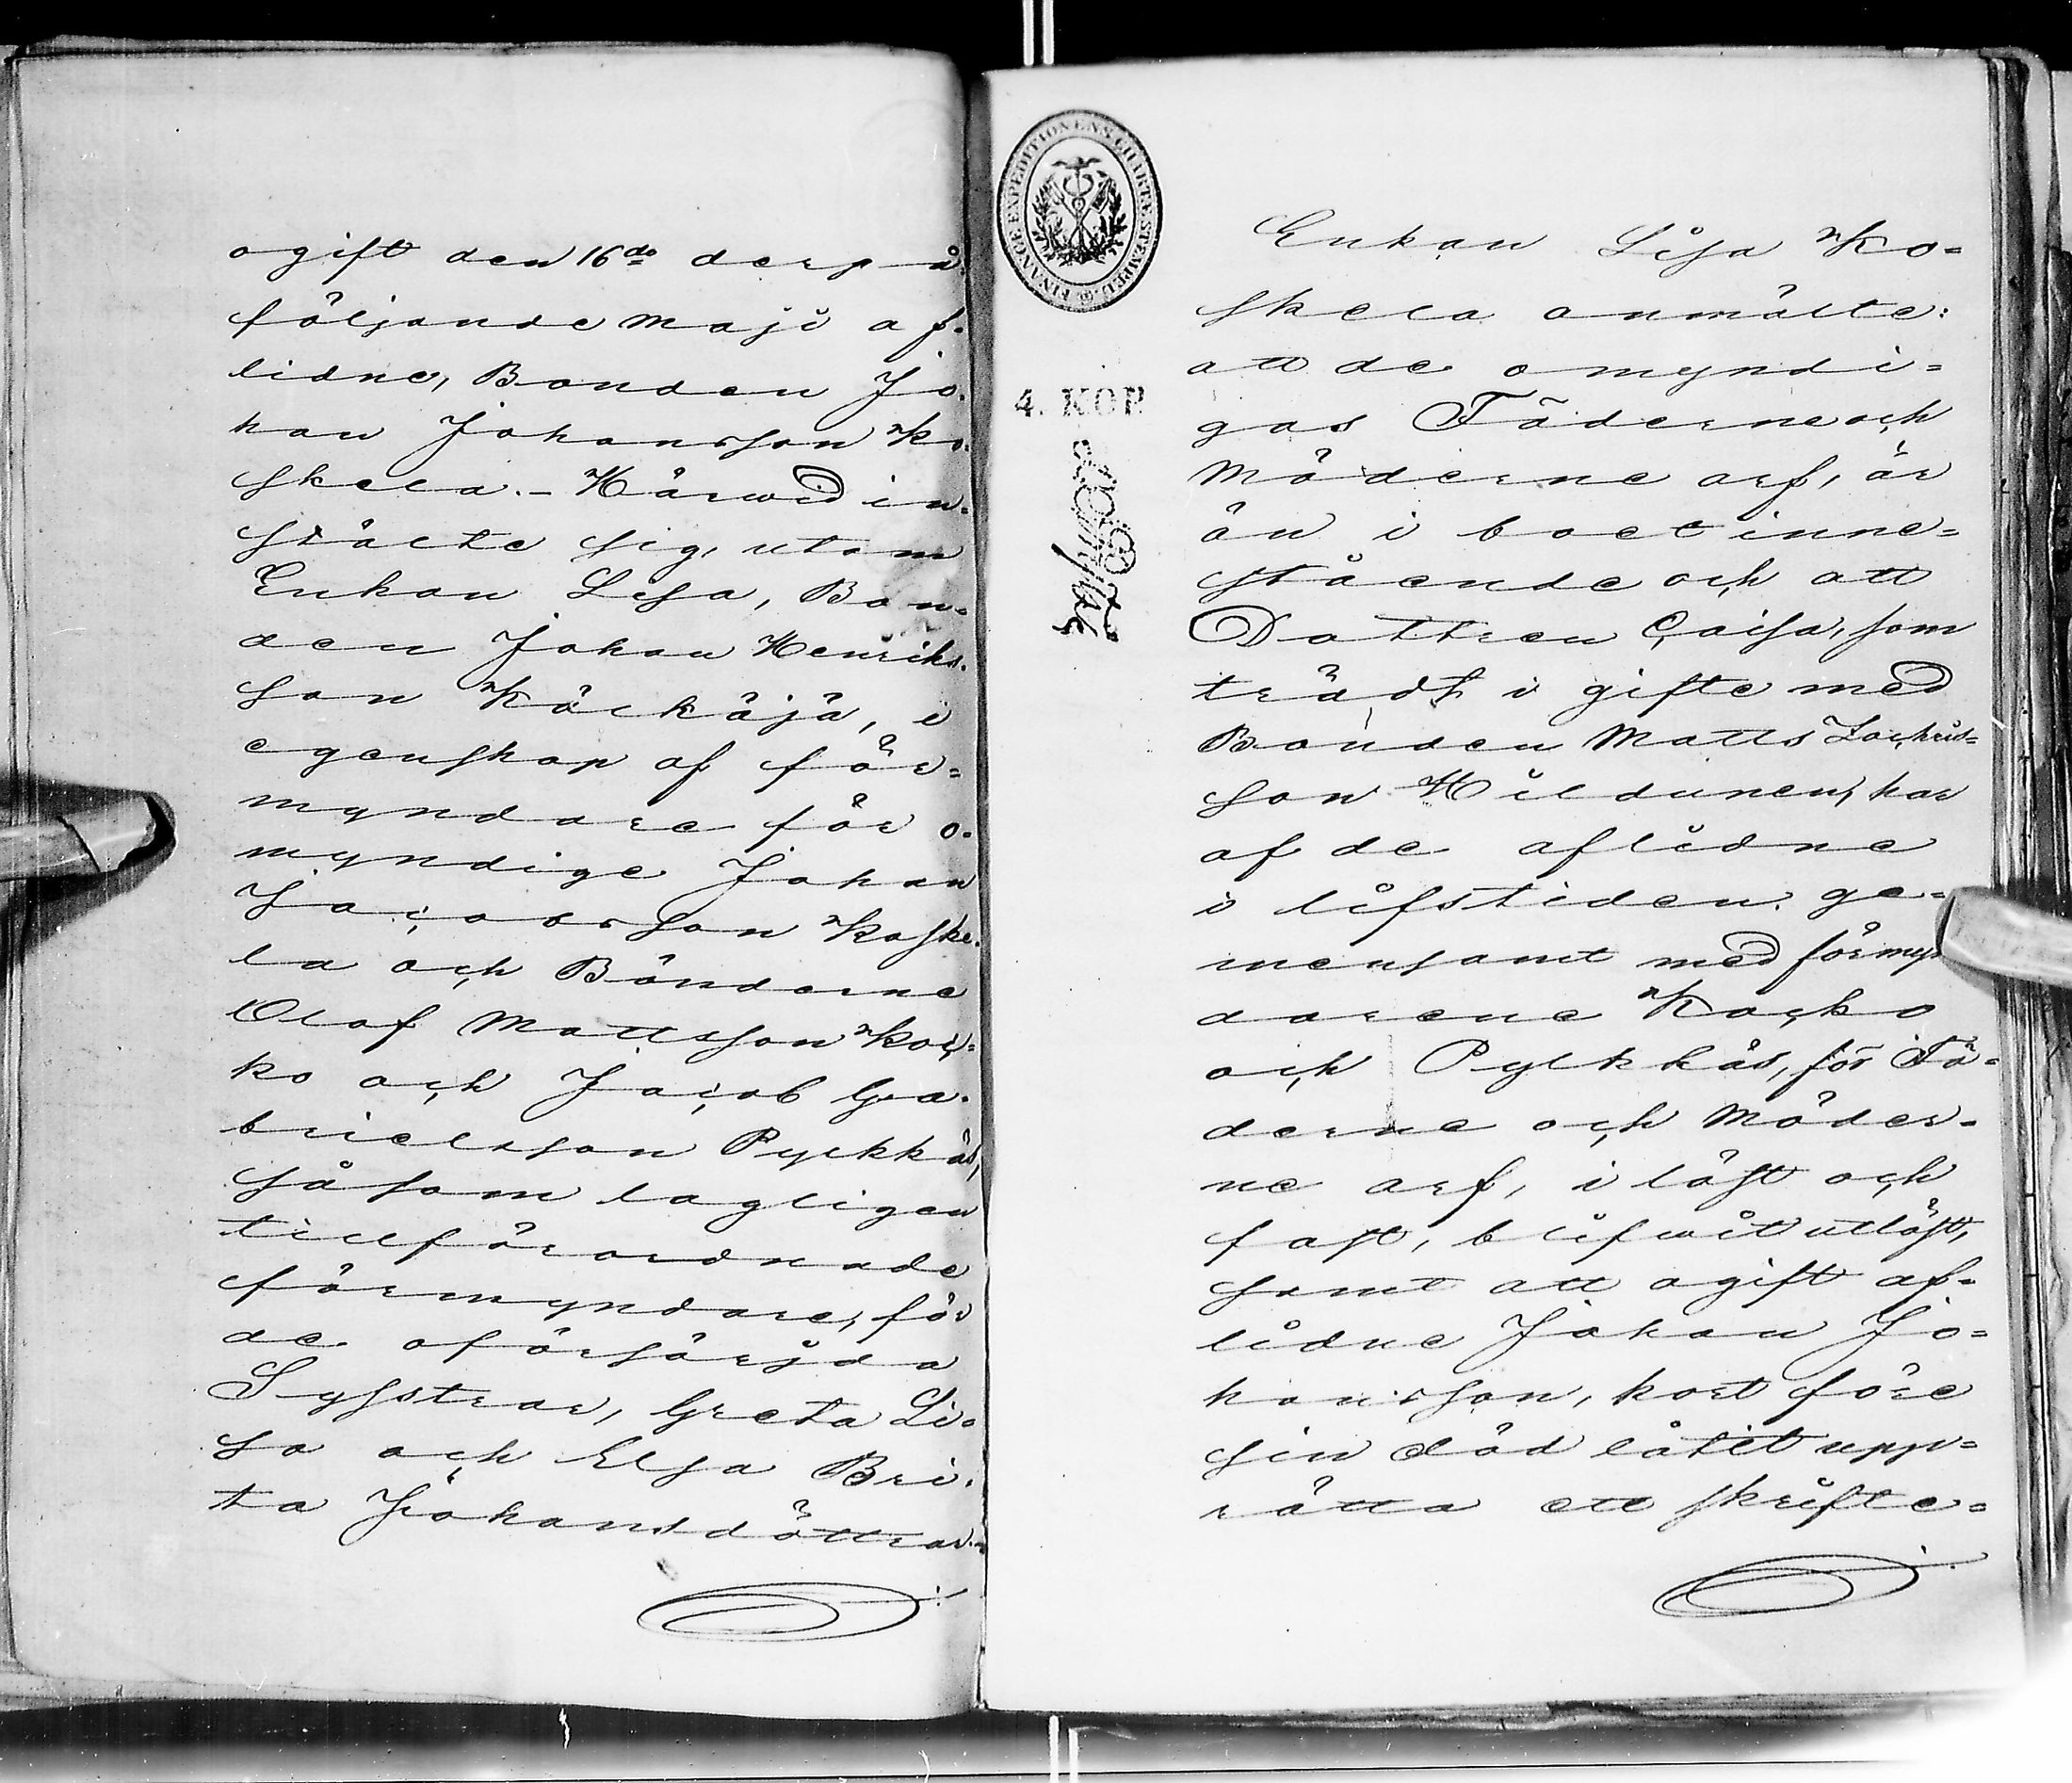 ogift den 16de derpå
följande Maji af-
lidne, Bonden Jo-
han Johansson Ko-
skela. - Härwid in-
stälte sig, utom
Enkan Lisa, Bon-
den Johan Henriks-
son Kälkäjä, i
egenskap af för-
myndare för o-
myndige Johan
Jacobsson Koske-
la och Bönderne
Olof Mattsson Koc-
ko och Jacob Ga-
brielsson Pylkkäs,
såsom lagligen
tillförordnade
förmyndare, för
de oförsörjda
Systrar, Greta Li-
sa och Elsa Bri-
ta Johansdöttrar.-
FINANCE EXPEDITIONENS CHARTÆ STEMPEL
4. KOP
Enkan Lisa Ko-
skela anmälte:
att de omyndi-
gas Fäderne och
Möderne arf, är
än i boet inne-
stående och att
Dottren Caisa, som
trädt i gifte med
Bonden Matts Zachris-
son Hildunen, har
af de aflidne
i lifstiden ge-
mensamt med förmyn
darene Kocko
och Pylkkäs, för Fä-
derne och Möder-
ne arf, i löst och
fast, blifwit utlöst,
samt att ogift af-
lidne Johan Jo-
hansson, kort före
sin död låtit upp-
rätta ett skrifte-